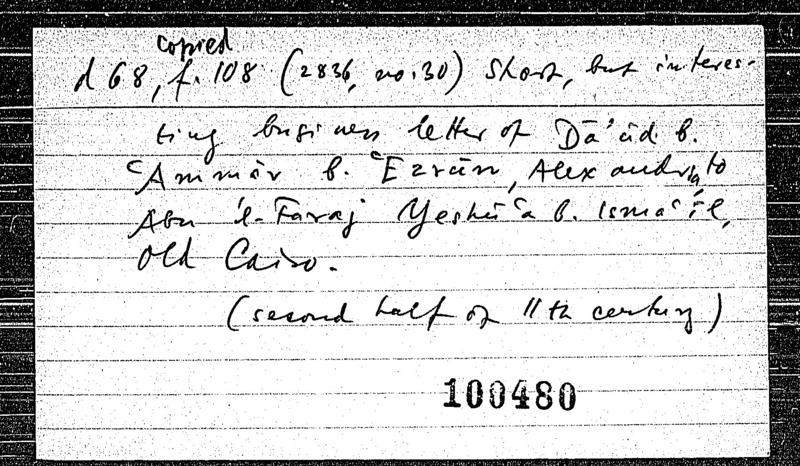 copied
d 68, f. 108 (2836, no. 30) Short, but interes-
ting business letter of Dā'ūd b.
ʿAmmār b. ʿEzrūn, Alexandria, to
Abu 'l-Faraj Yeshūʿā b. Ismāʿīl,
Old Cairo.
(second half of 11th century)
100480